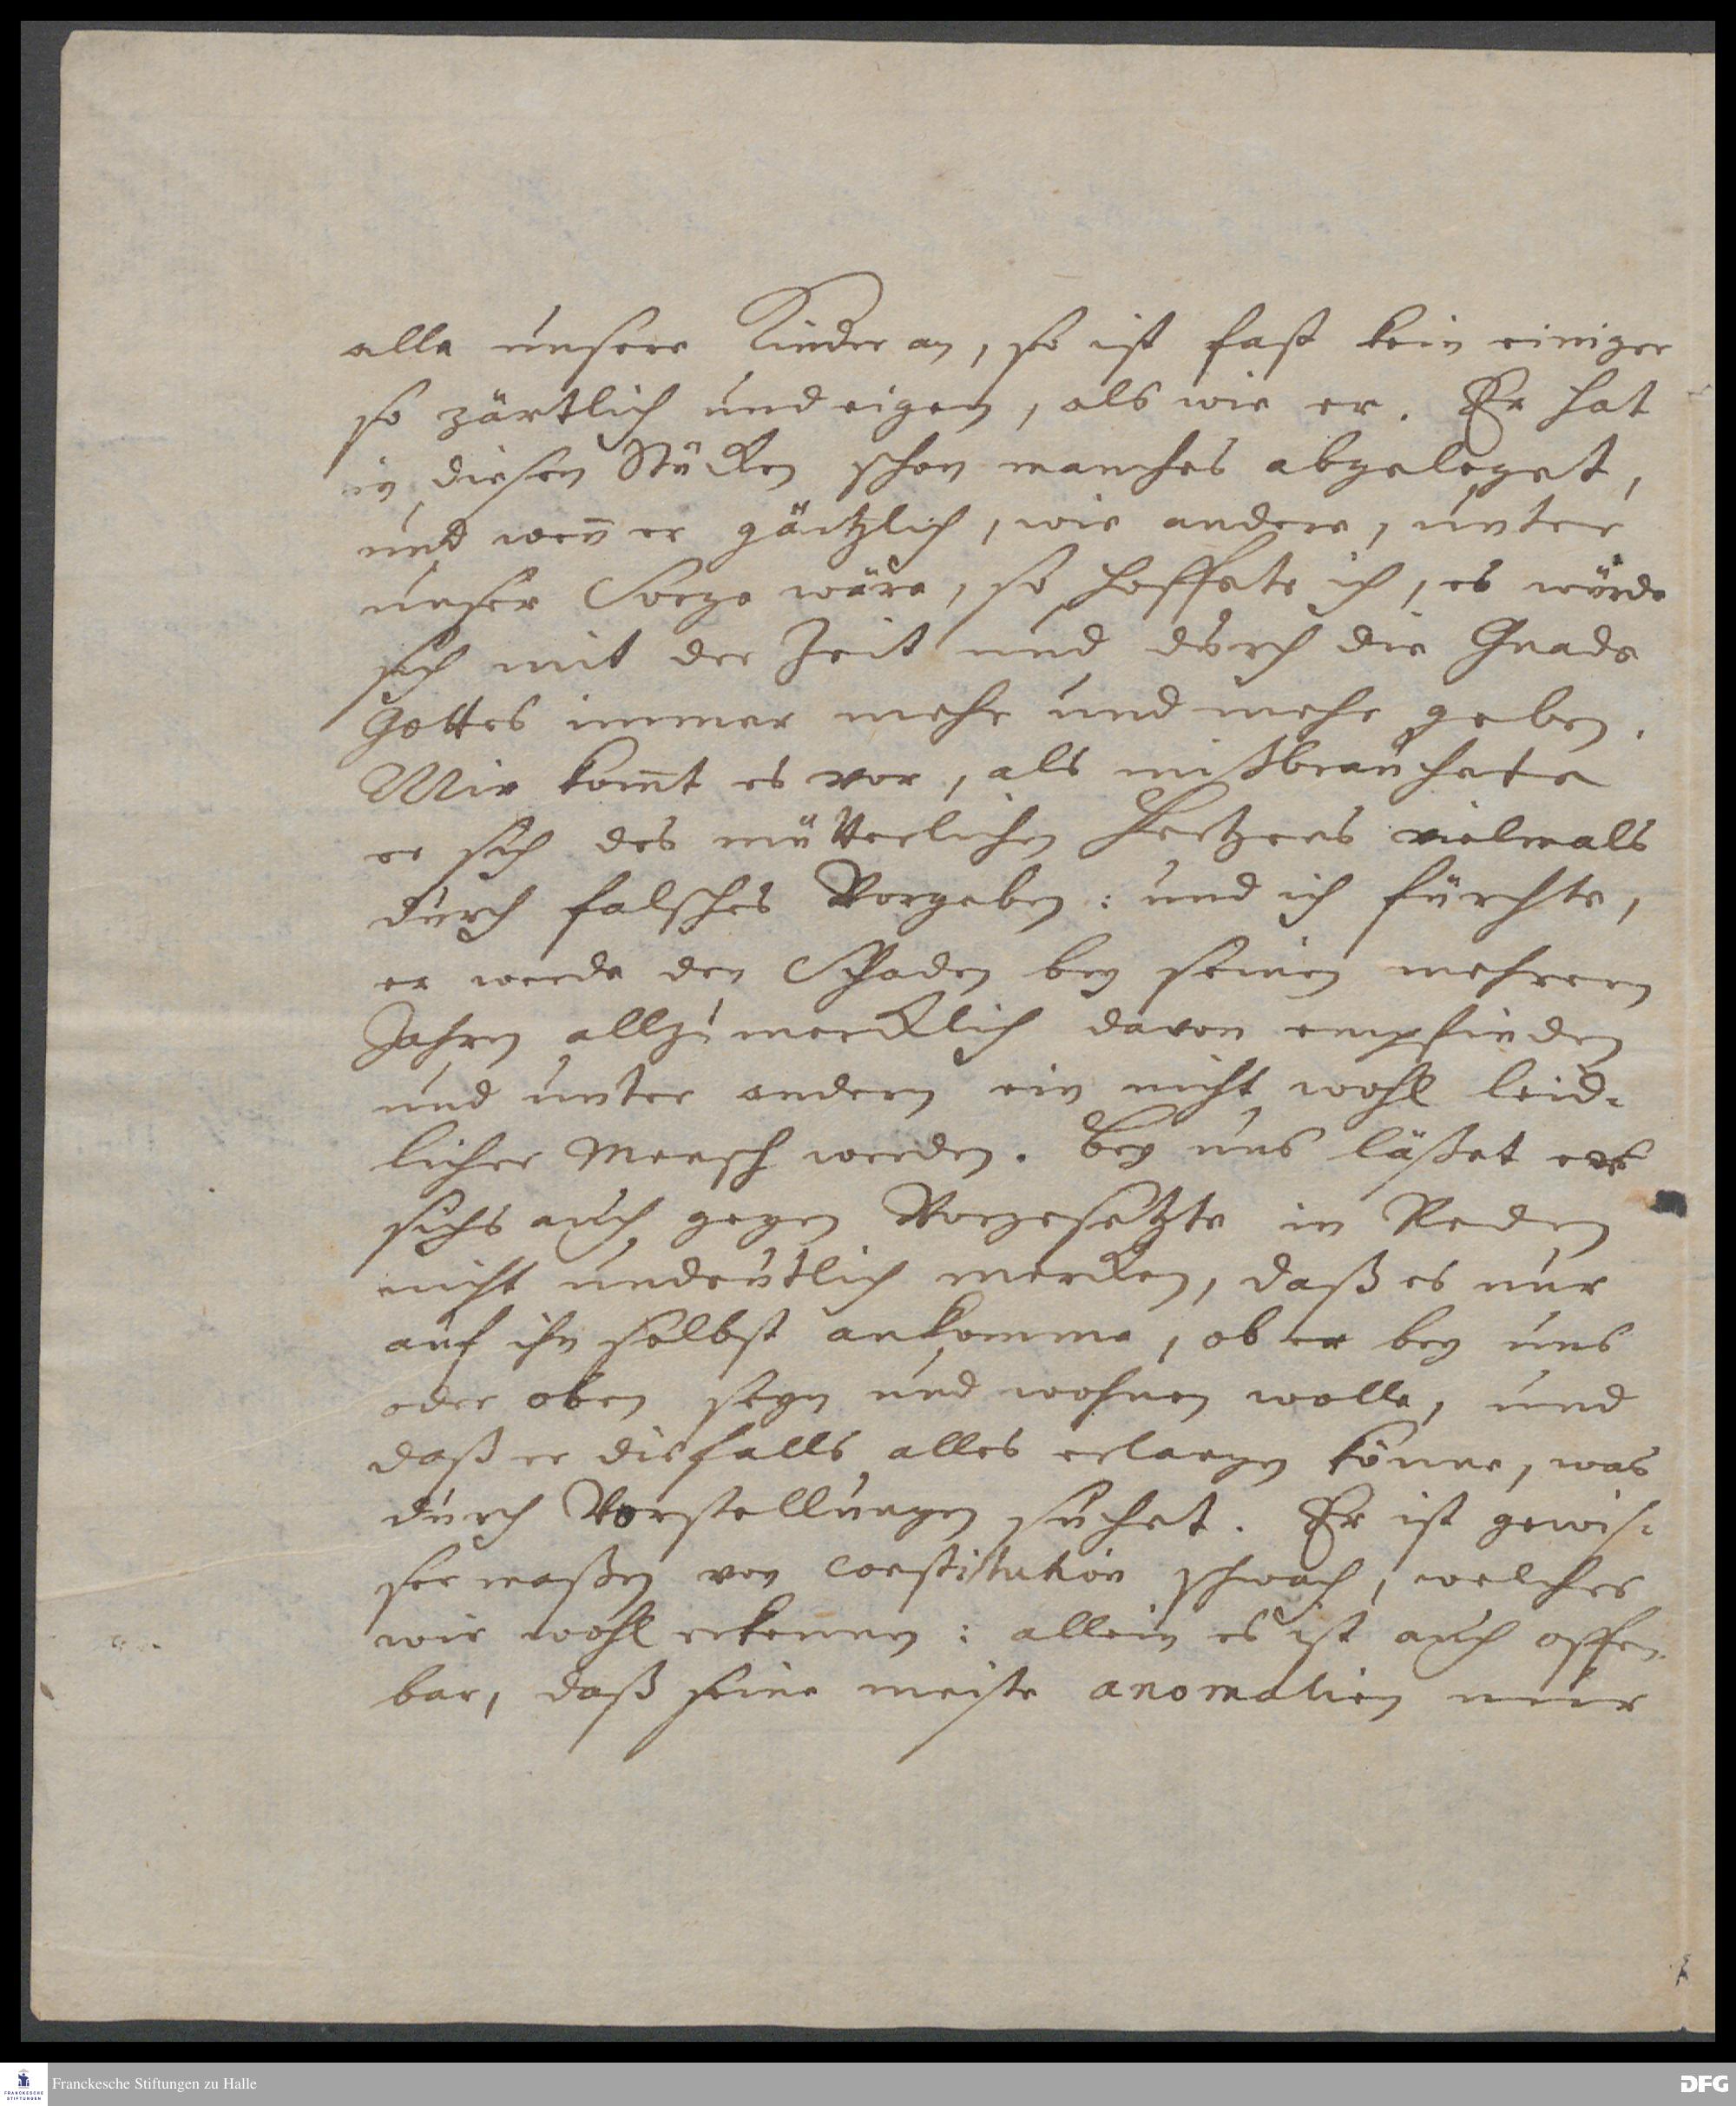 alle unsere Kinder an, so ist fast kein einiger
so zärtlich und eigen, als wie er. Er hat
in diesen Stücken schon manches abgeleget,
und weñ er gäntzlich, wie andere, unter
unser Sorge wäre, so hoffete ich, es würde
sich mit der Zeit und durch die Gnade
Gottes immer mehr und mehr geben.
Mir kom̃t es vor, als mißbrauchete
er sich des mütterlichen Hertzens vielmals
durch falsches Vorgeben: und ich fürchte,
er werde den Schaden bey seinen mehrern
Jahren allzu mercklich davon empfinden
und unter andern ein nicht wohl leid-
licher Mensch werden. Bey uns läßet er
sichs auch gegen Vorgesetzte in Reden
nicht undeutlich mercken, daß es nur
auf ihn selbst ankomme, ob er bey uns
oder oben seyn und wohnen wolle, und
daß er disfalls alles erlangen könne, was
durch Vorstellungen suchet. Er ist gewis-
ser maßen von constitution schwach, welches
wir wohl erkennen: allein es ist auch offen-
bar, daß seine meiste anomalien nur
Franckesche Stiftungen zu Halle
FRANCKESCHE
STIFTUNGEN
DFG